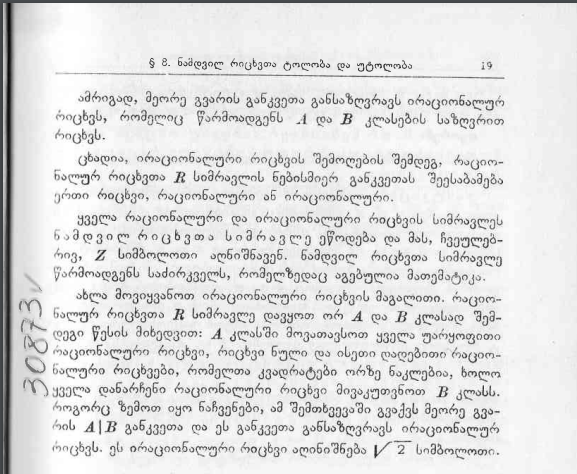 § 8. ნამდვილ რიცხვთა ტოლობა და უტოლობა 19
ამრიგად, მეორე გვარის განკვეთა განსაზღვრავს ირაციონალურ
რიცხვს, რომელიც წარმოადგენს A და B კლასების საზღვრით
რიცხვს.
ცხადია, ირაციონალური რიცხვის შემოღების შემდეგ, რაციო-
ნალურ რიცხვთა R სიმრავლის ნებისმიერ განკვეთას შეესაბამება
ერთი რიცხვი, რაციონალური ან ირაციონალური.
ყველა რაციონალური და ირაციონალური რიცხვის სიმრავლეს
ნამდვილ რიცხვთა სიმრავლე ეწოდება და მას, ჩვეულებ-
რივ, Z სიმბოლოთი აღნიშნავენ. ნამდვილ რიცხვთა სიმრავლე
წარმოადგენს საძირკველს, რომელზედაც აგებულია მათემატიკა.
ახლა მოვიყვანოთ ირაციონალური რიცხვის მაგალითი. რაციო-
ნალურ რიცხვთა R სიმრავლე დავყოთ ორ A და B კლასად შემ-
დეგი წესის მიხედვით: A კლასში მოვათავსოთ ყველა უარყოფითი
რაციონალური რიცხვი, რიცხვი ნული და ისეთი დადებითი რაციო-
ნალური რიცხვები, რომელთა კვადრატები ორზე ნაკლებია, ხოლო
ყველა დანარჩენი რაციონალური რიცხვი მივაკუთვნოთ B კლასს.
როგორც ზემოთ იყო ნაჩვენები, ამ შემთხვევაში გვაქვს მეორე გვა-
რის A|B განკვეთა და ეს განკვეთა განსაზღვრავს ირაციონალურ
რიცხვს. ეს ირაციონალური რიცხვი აღინიშნება √2 სიმბოლოთი.
30873